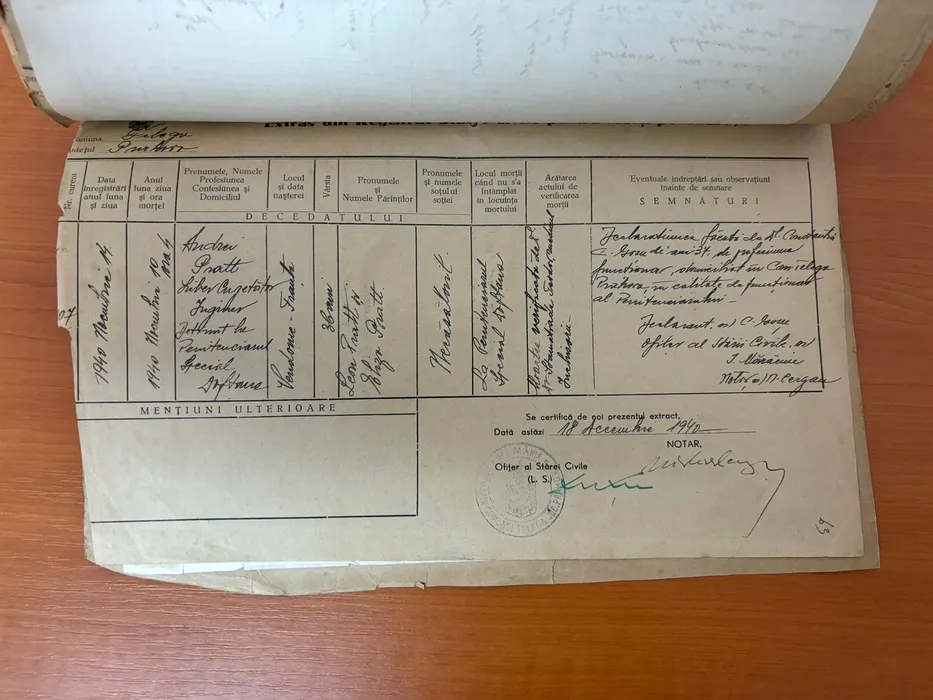 Extras din Registrul
Comuna Telega
Județul Prahova
Nr. curent
Data înregistrării anul luna și ziua
Anul luna ziua și ora morței
Prenumele, Numele Profesiunea Confesiunea și Domiciliul
Locul și data nașterei
Vârsta
Pronumele și Numele Părinților
Pronumele și numele soțului soției
Locul morții când nu s'a întâmplat în locuința mortului
Arătarea actului de verificarea morții
Eventuale îndreptări sau observațiuni înainte de semnare
SEMNĂTURI
DECEDATULUI
07
1940 Noembrie 14
1940 Noembrie 10 ora 4
Andrei
Pratt
Liber Cugetător
Inginer
Detinut la
Penitenciarul
Special
Doftana
36 ani
Leon Pratt și
Eliza Pratt
Necăsătorit
La Penitenciarul
Special Doftana
Moartea verificată de
Închisorii
Declarațiunea făcută de Dl. Constantin
C. de ani 37, de profesiune
funcționar, domiciliat în Com. Telega
Prahova, în calitate de funcționar
al Penitenciarului
Declarant, ss) C.
Ofițer al Stării Civile, ss)
I. Mărăcine
Notar ss) M. Cergau
MENȚIUNI ULTERIOARE
Se certifică de noi prezentul extract,
Dată astăzi 18 Decembrie 1940
NOTAR,
Ofițer al Stărei Civile
(L. S.)
ROMÂNIA
69